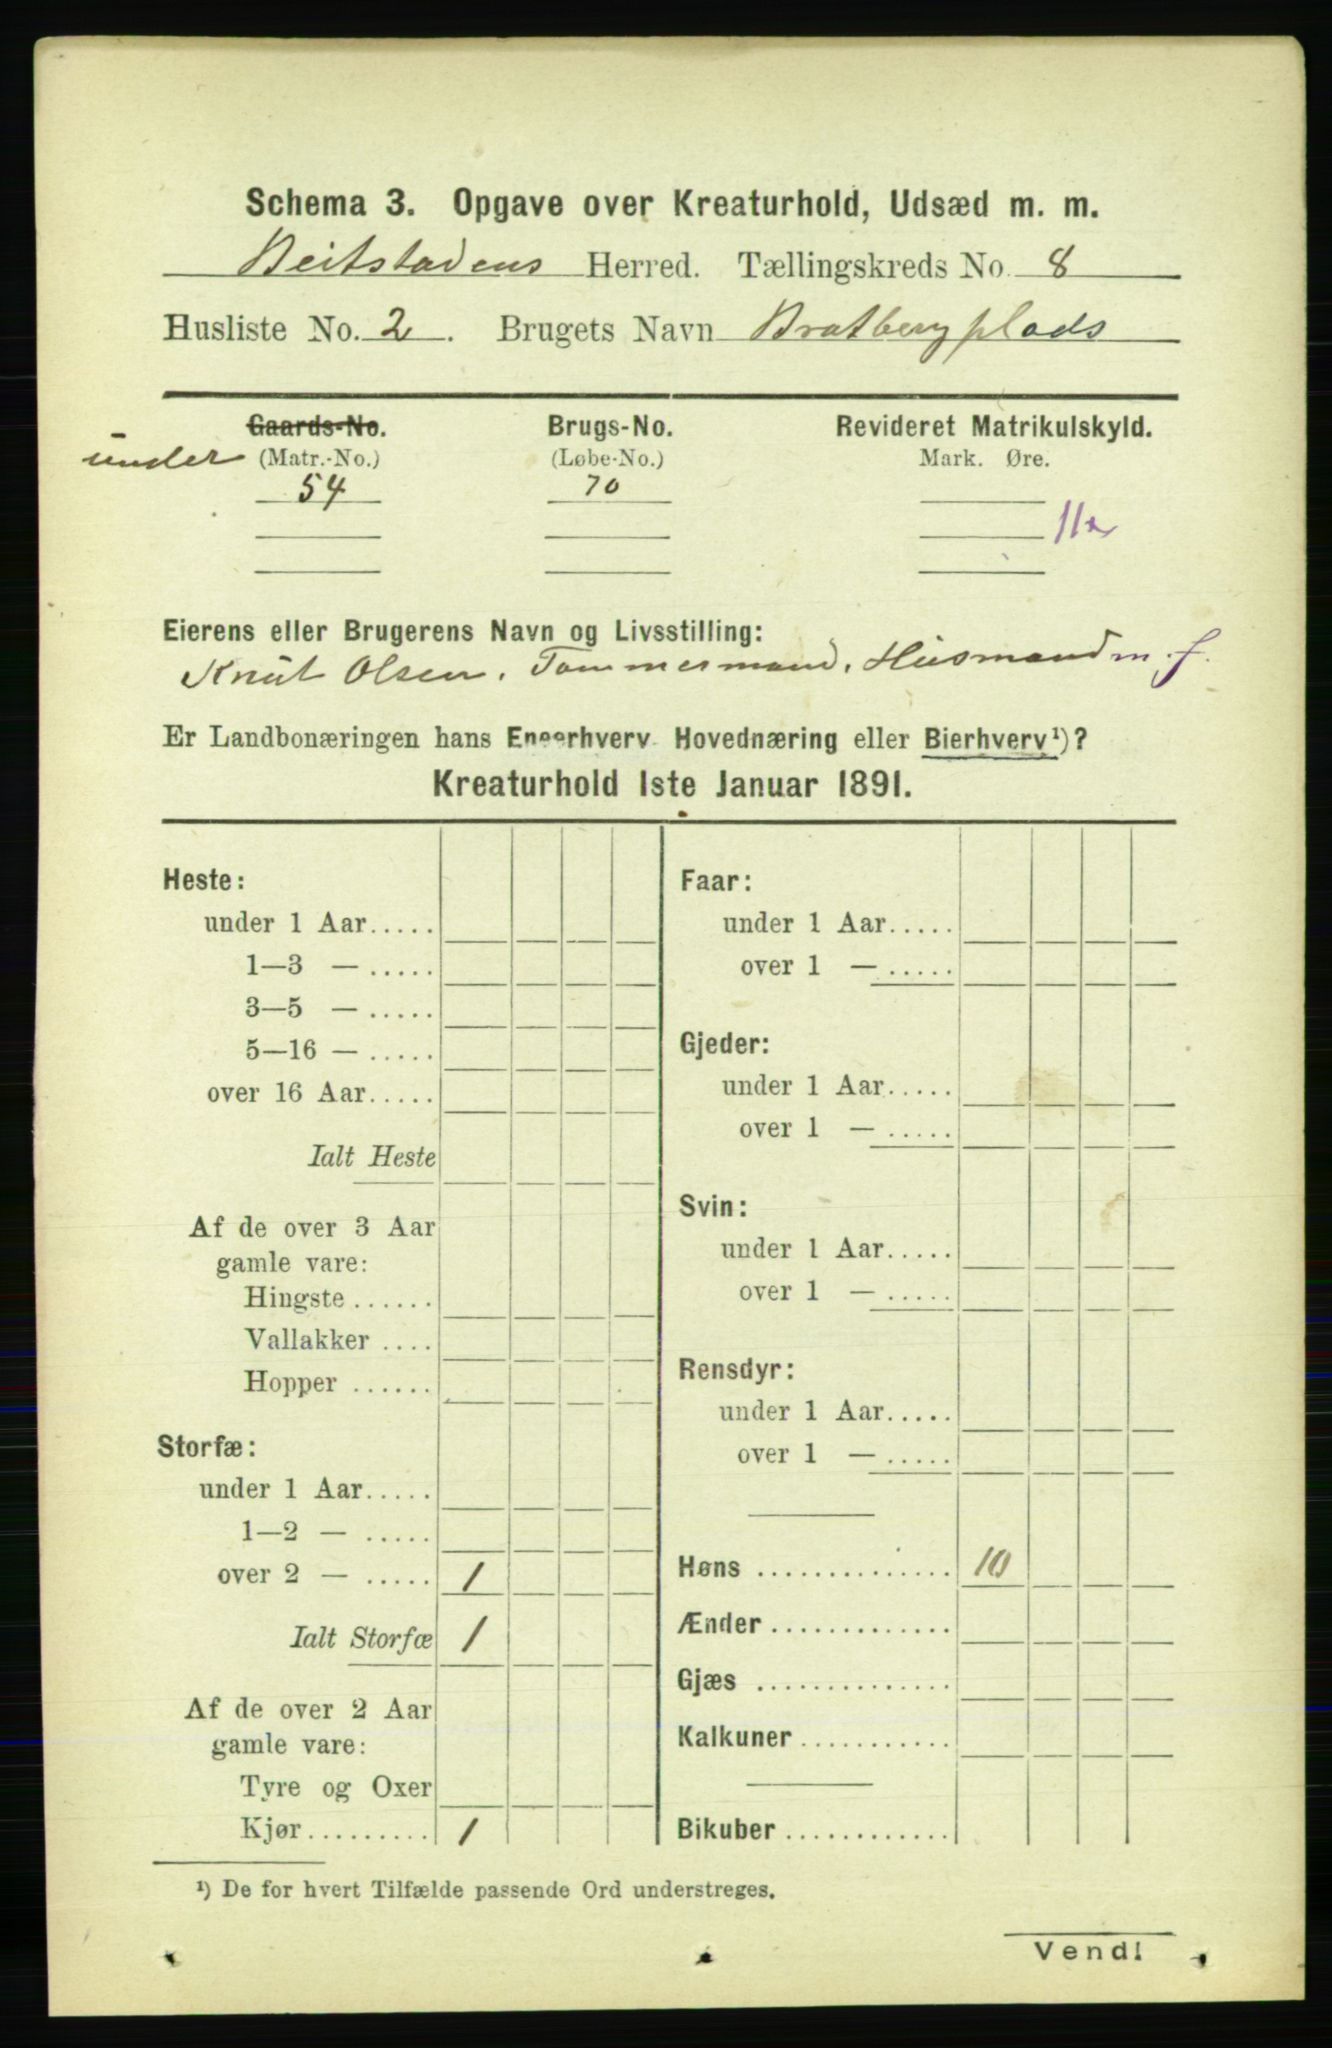 Schema 3. Opgave over Kreaturhold, Udsæd m. m.
Beitstadens Herred. Tællingskreds No. 8
Husliste No. 2. Brugets Navn Bratbergplads
Gaards-No. Brugs-No. Revideret Matrikulskyld.
under (Matr.-No.) (Løbe-No.) Mark. Øre.
54 70
Eierens eller Brugerens Navn og Livsstilling:
Knut Olsen, Tømmermand, Husmand m. f.
Er Landbonæringen hans Eneerhverv Hovednæring eller Bierhverv¹)?
Kreaturhold 1ste Januar 1891.
Heste:
under 1 Aar.....
1—3 — .....
3—5 — .....
5—16 — .....
over 16 Aar.....
Ialt Heste
Af de over 3 Aar
gamle vare:
Hingste......
Vallakker ....
Hopper ......
Storfæ:
under 1 Aar.....
1—2 — .....
over 2 — ..... 1
Ialt Storfæ 1
Af de over 2 Aar
gamle vare:
Tyre og Oxer
Kjør......... 1
Faar:
under 1 Aar.....
over 1 — .....
Gjeder:
under 1 Aar.....
over 1 — .....
Svin:
under 1 Aar.....
over 1 — .....
Rensdyr:
under 1 Aar.....
over 1 — .....
Høns .............. 10
Ænder.............
Gjæs ..............
Kalkuner...........
Bikuber............
¹) De for hvert Tilfælde passende Ord understreges.
Vend!